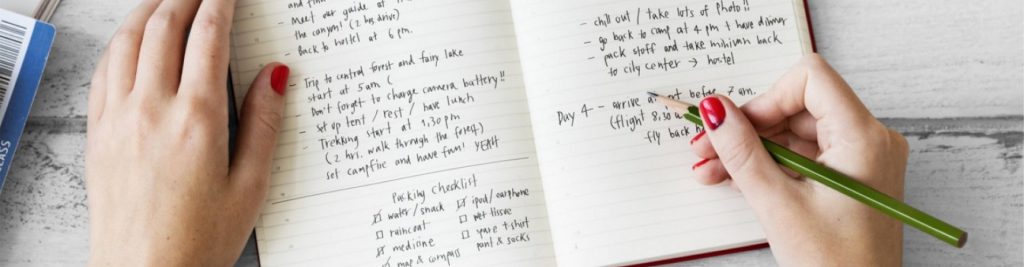 Meet our guide at
the canyon! (2 hrs drive)
- Back to hostel at 6 pm.
- Trip to central forest and fairy lake
start at 5am (
Don't forget to charge camera battery!!
- Set up tent / rest / have lunch
- Trekking start at 1.30 pm
(2 hrs. walk through the forest)
set campfire and have fun! YEAH
Packing Checklist
water/snack
raincoat
medicine
map & compass
ipod/earphone
wet tissue
t-shirt
pant & socks
- chill out / take lots of photo!!
- go back to camp at 4 pm & have dinner
- pack stuff and take minivan back
to city center → hostel
Day 4 - arrive
(flight 8.30
fly back
CLASS